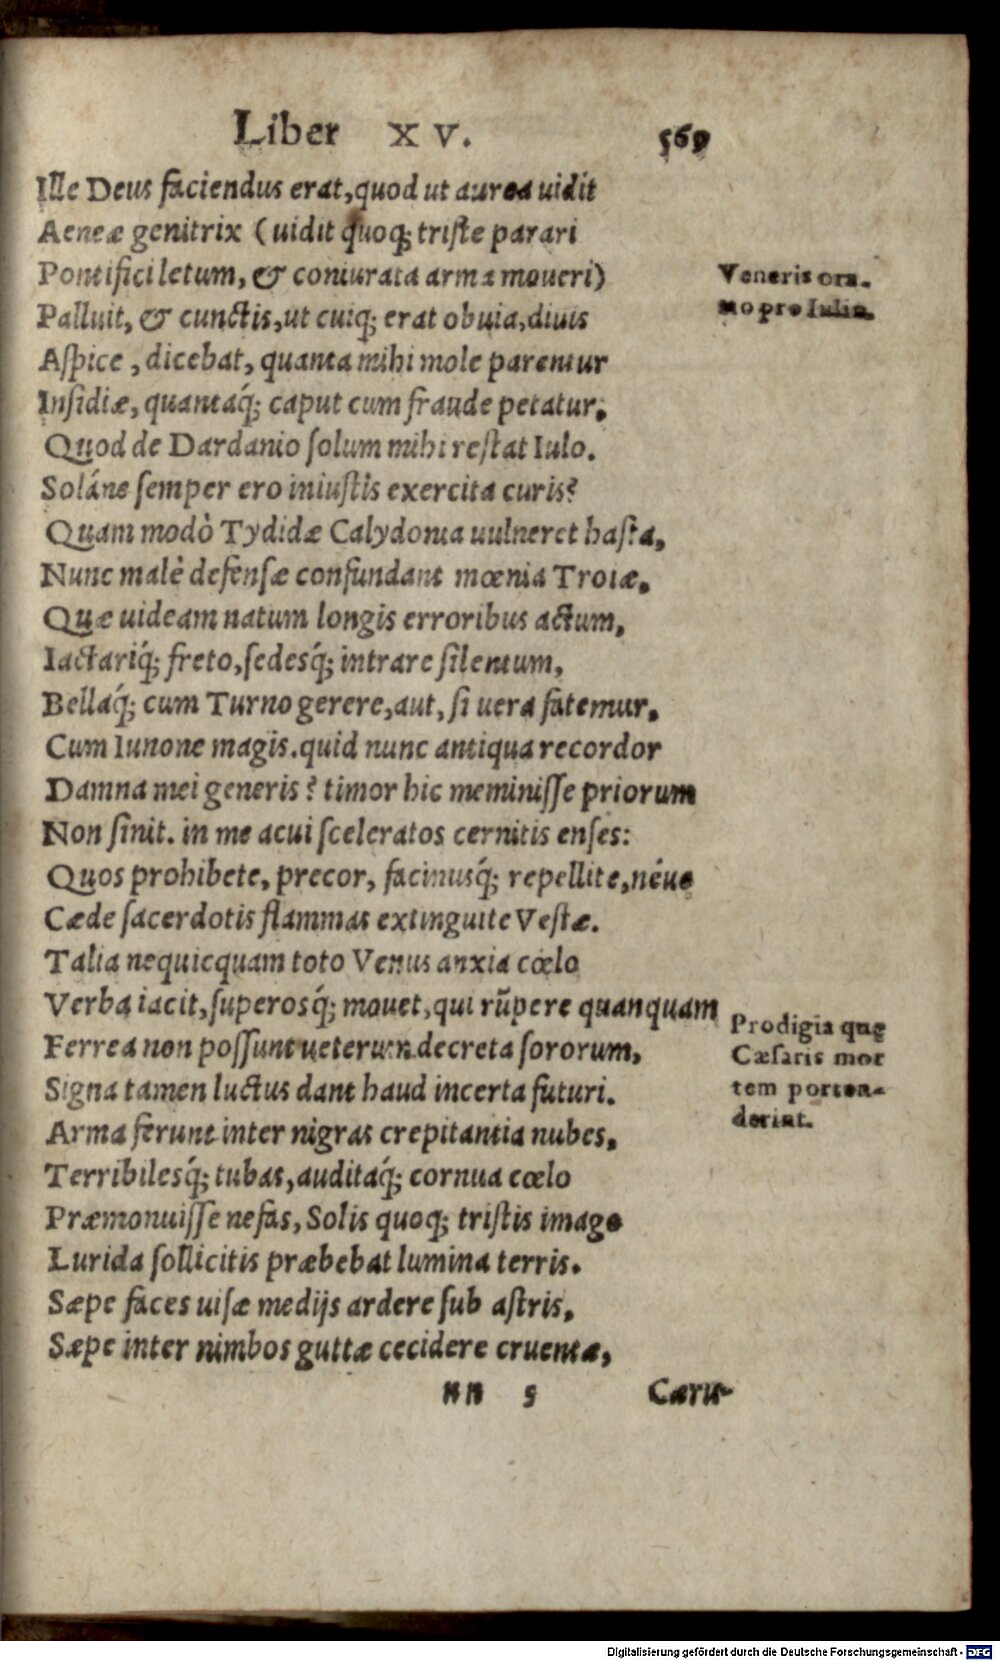 Liber XV. 569
Ille Deus faciendus erat, quod ut aurea uidit
Aeneæ genitrix (uidit quoq; triste parari
Pontifici letum, & coniurata arma moueri)
Palluit, & cunctis, ut cuiq; erat obuia, diuis
Aspice, dicebat, quanta mihi mole parentur
Insidiæ, quantaq́; caput cum fraude petatur,
Quod de Dardanio solum mihi restat Iulo.
Soláne semper ero iniustis exercita curis?
Quam modò Tydidæ Calydonia uulneret hasta,
Nunc malè defensæ confundant mœnia Troiæ,
Quæ uideam natum longis erroribus actum,
Iactariq́; freto, sedesq́; intrare silentum,
Bellaq́; cum Turno gerere, aut, si uera fatemur,
Cum Iunone magis. quid nunc antiqua recordor
Damna mei generis? timor hic meminisse priorum
Non sinit. in me acui sceleratos cernitis enses:
Quos prohibete, precor, facinusq́; repellite, néue
Cæde sacerdotis flammas extinguite Vestæ.
Talia nequicquam toto Venus anxia cœlo
Verba iacit, superosq́; mouet, qui rũpere quanquam
Ferrea non possunt ueterum decreta sororum,
Signa tamen luctus dant haud incerta futuri.
Arma ferunt inter nigras crepitantia nubes,
Terribilesq́; tubas, auditaq́; cornua cœlo
Præmonuisse nefas, Solis quoq; tristis imago
Lurida sollicitis præbebat lumina terris.
Sæpe faces uisæ medijs ardere sub astris,
Sæpe inter nimbos guttæ cecidere cruentæ,
nn 5 Cæru-
Veneris ora-
tio pro Iulio.
Prodigia quę
Cæsaris mor
tem porten-
derint.
Digitalisierung gefördert durch die Deutsche Forschungsgemeinschaft - DFG